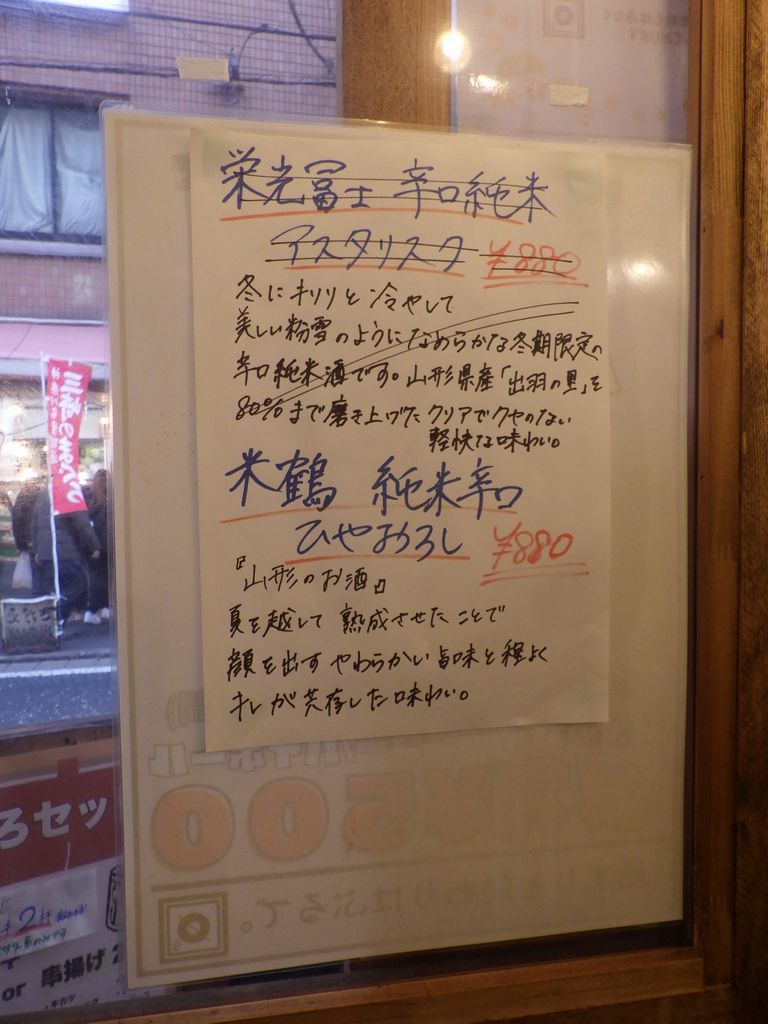 栄光冨士 辛口純米
アスタリスク ¥880
冬にキリリと冷やして
美しい粉雪のようになめらかな冬期限定の
辛口純米酒です。山形県産「出羽の里」を
80%まで磨き上げたクリアでクセのない
軽快な味わい。
米鶴 純米辛口
ひやおろし ¥880
『山形のお酒』
夏を越して熟成させたことで
顔を出すやわらかい旨味と程よく
キレが共存した味わい。
三崎のまぐろ
500
始まりと終わりはぶるで。
ろセッ
2杯
or 串揚げ 2